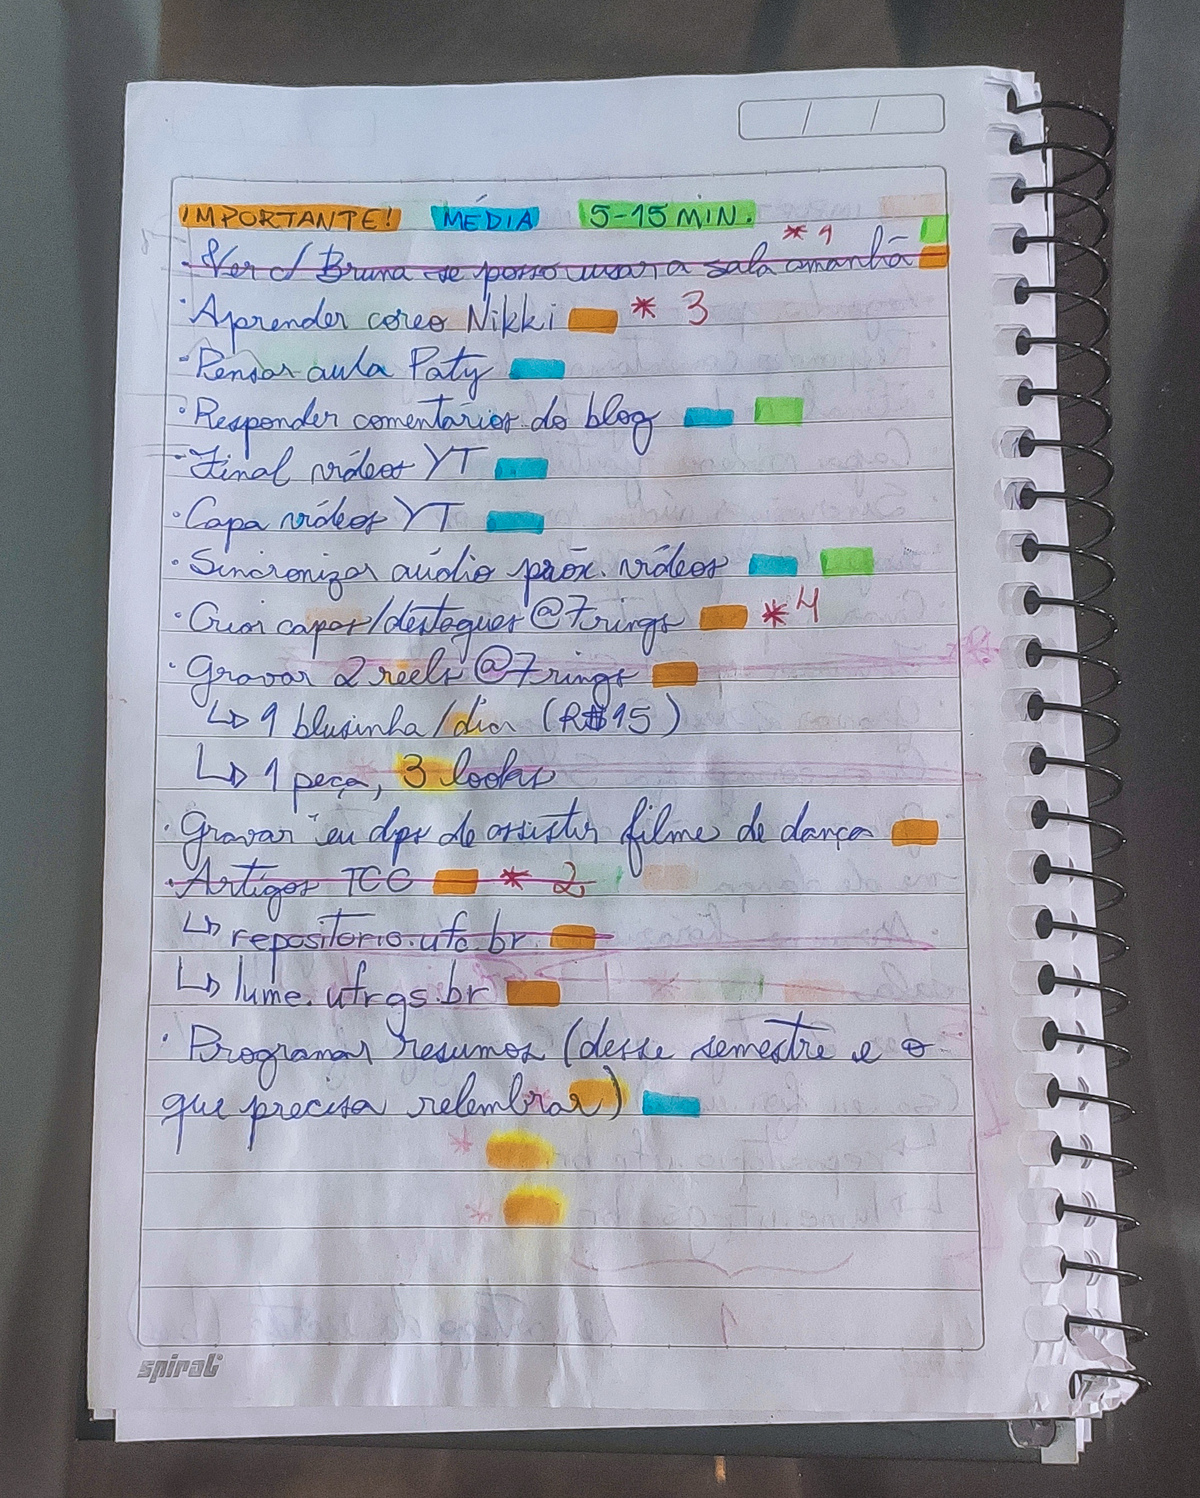 IMPORTANTE! MÉDIA 5-15 MIN.
* 1
· Ver c/ Bruna se posso usar a sala amanhã
· Aprender coreo Nikki * 3
· Pensar aula Paty
· Responder comentários do blog
· Final vídeos YT
· Capa vídeos YT
· Sincronizar aúdio próx. vídeos
· Criar capas/destaques @7rings * 4
· Gravar 2 reels @7rings
↳ 1 blusinha/dia (R$15)
↳ 1 peça, 3 looks
· Gravar eu dps de assistir filme de dança
· Artigos TCC * 2
↳ repositorio.ufc.br
↳ lume.ufrgs.br
· Programar resumos (desse semestre e o
que precisa relembrar)
spiral